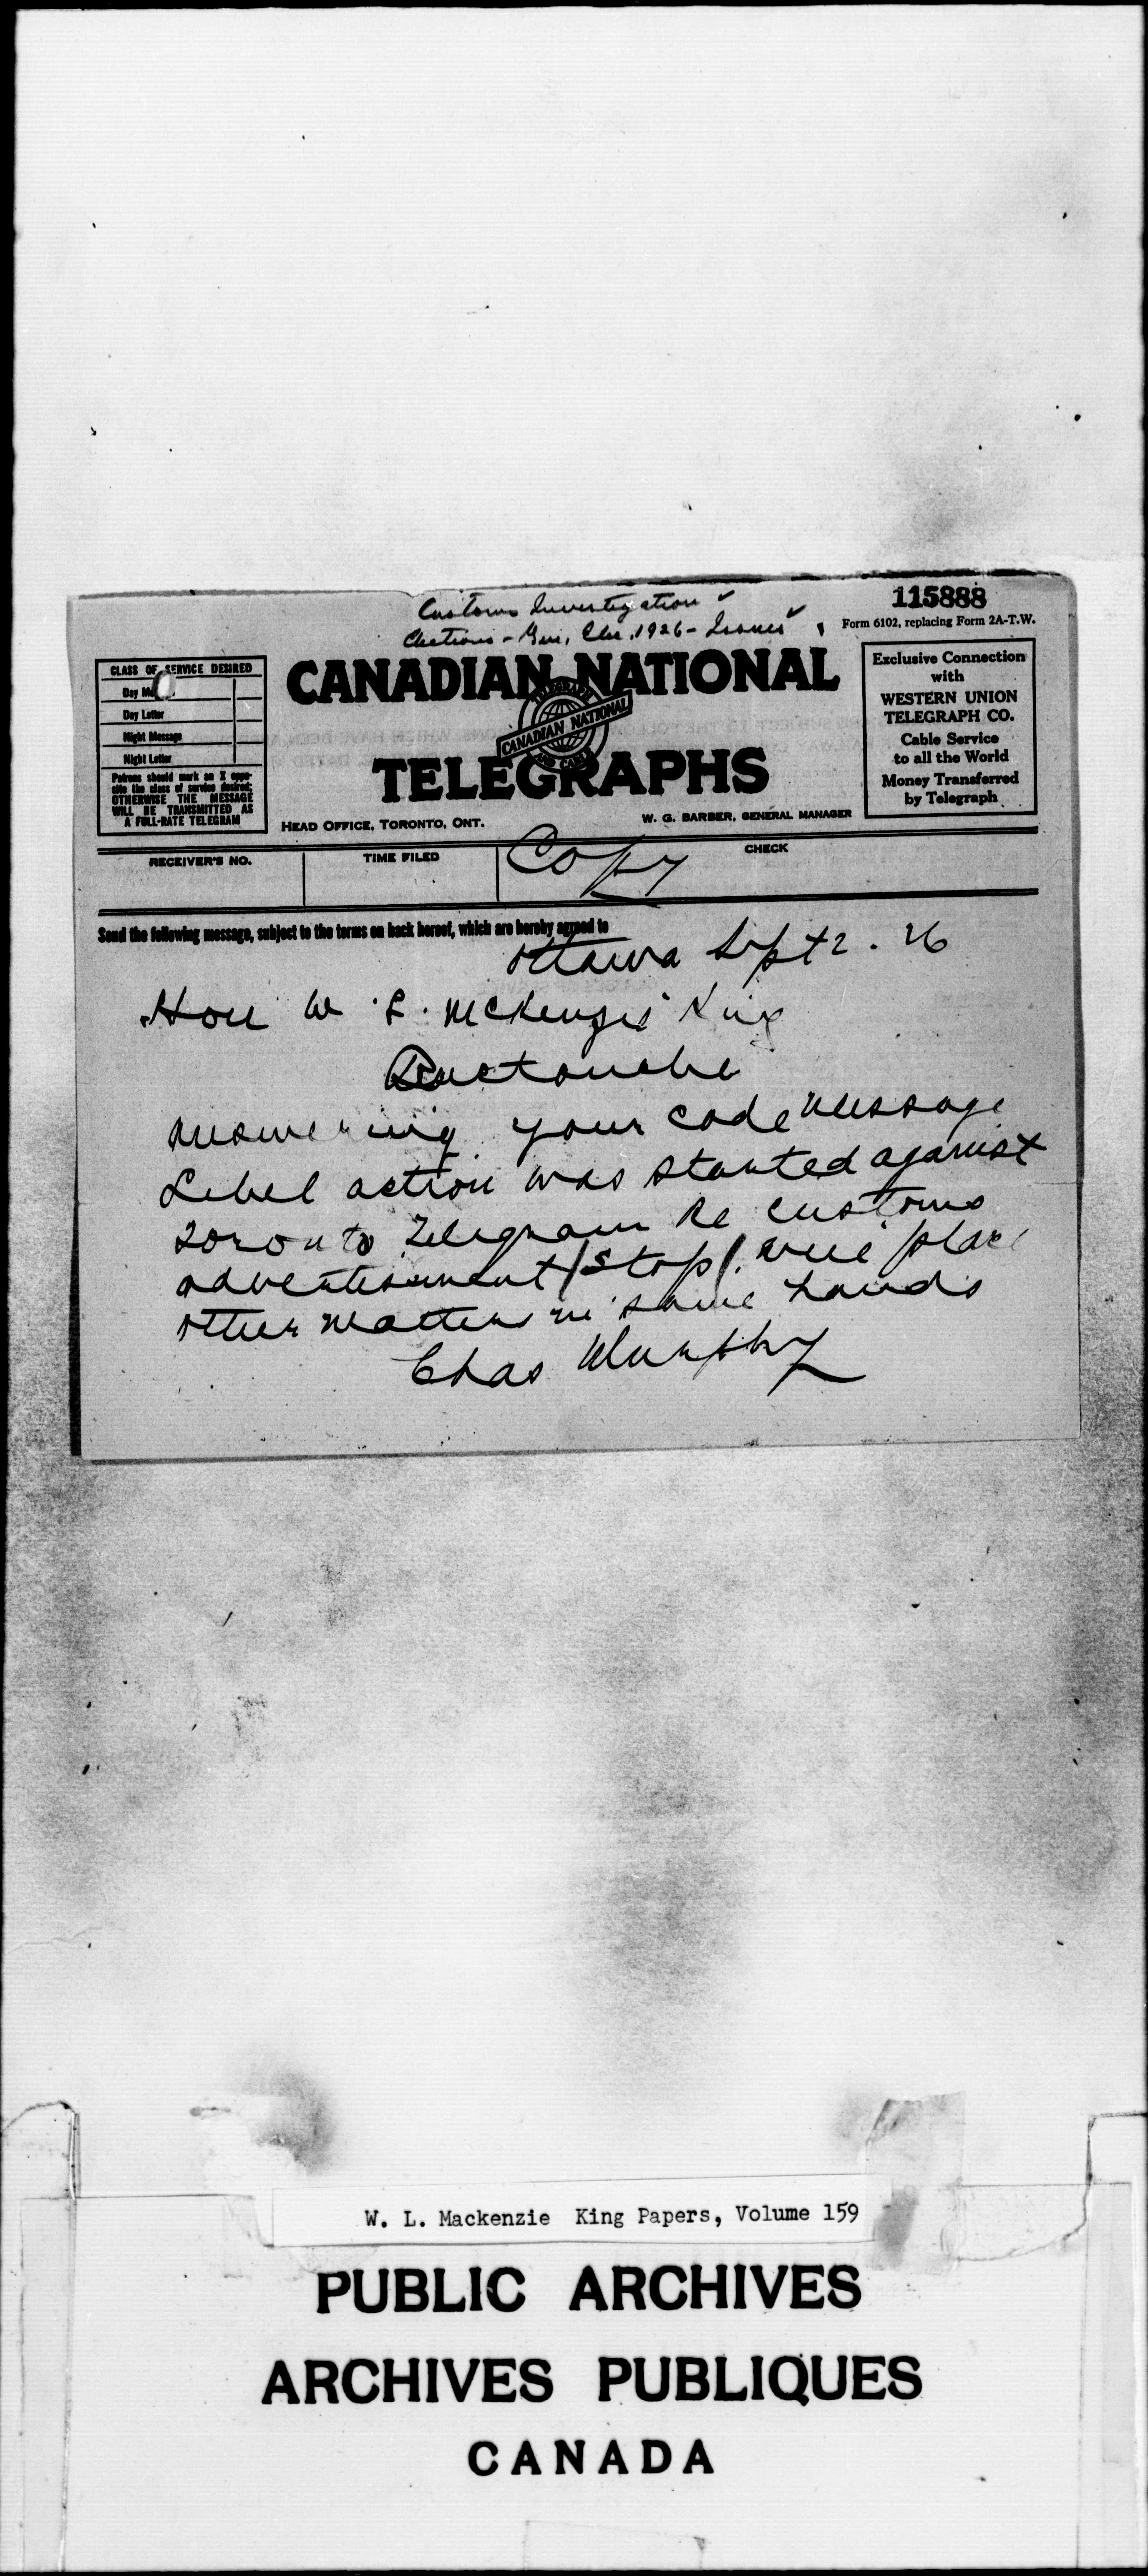 Customs Investigation ✓
Elections - Gen. Elec. 1926 - Issues ✓
115888
Form 6102, replacing Form 2A-T.W.
CLASS OF SERVICE DESIRED
Day
Day Letter
Night Message
Night Letter
Patrons should mark an X oppo-
site the class of service desired;
OTHERWISE THE MESSAGE
WILL BE TRANSMITTED AS
A FULL-RATE TELEGRAM
CANADIAN NATIONAL
TELEGRAPH
CANADIAN NATIONAL
AND CABLE
TELEGRAPHS
Exclusive Connection
with
WESTERN UNION
TELEGRAPH CO.
Cable Service
to all the World
Money Transferred
by Telegraph
HEAD OFFICE, TORONTO, ONT.
W. G. BARBER, GENERAL MANAGER
RECEIVER'S NO.
TIME FILED
Copy
CHECK
Send the following message, subject to the terms on back hereof, which are hereby agreed to
Ottawa Sept 2. 26
Hon W. L. McKenzie King
Buctouche
Answering your code message
Libel action was started against
Toronto Telegram Re customs
advertisement / Stop / will place
other matter in same hands
Chas Murphy
W. L. Mackenzie King Papers, Volume 159
PUBLIC ARCHIVES
ARCHIVES PUBLIQUES
CANADA